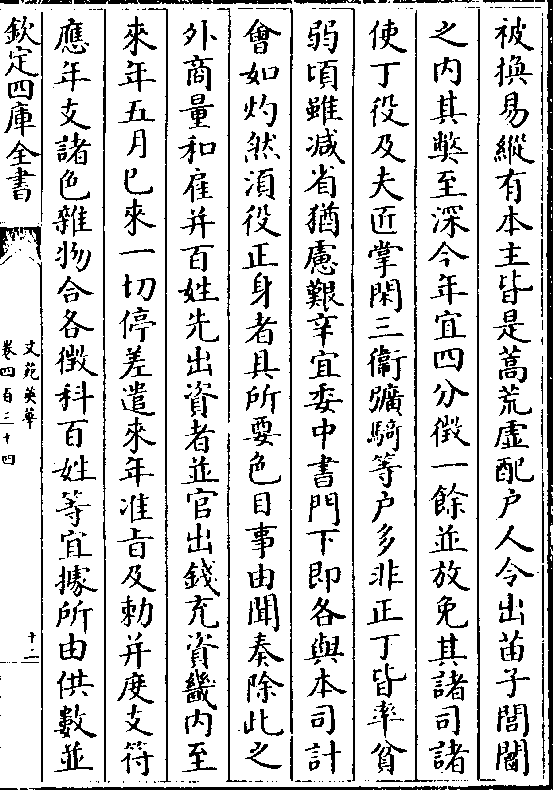 被換易縱有本主皆是蒿荒虛配户人令出苗子閭閻
之内其弊至深今年宜四分徴一餘並放免其諸司諸
使丁役及夫匠掌閑三衞彍騎等户多非正丁皆率貧
弱頃雖減省猶慮艱辛宜委中書門下即各與本司計
會如灼然湏役正身者具所要色目事由聞奏除此之
外商量和雇并百姓先出資者並官出錢充資畿内至
來年五月已來一切停差遣來年准旨及勅并度支符
應年支諸色雜物合各徴科百姓等宜據所由供數並
欽定四庫全書
文苑英華
卷四百三十四
十二